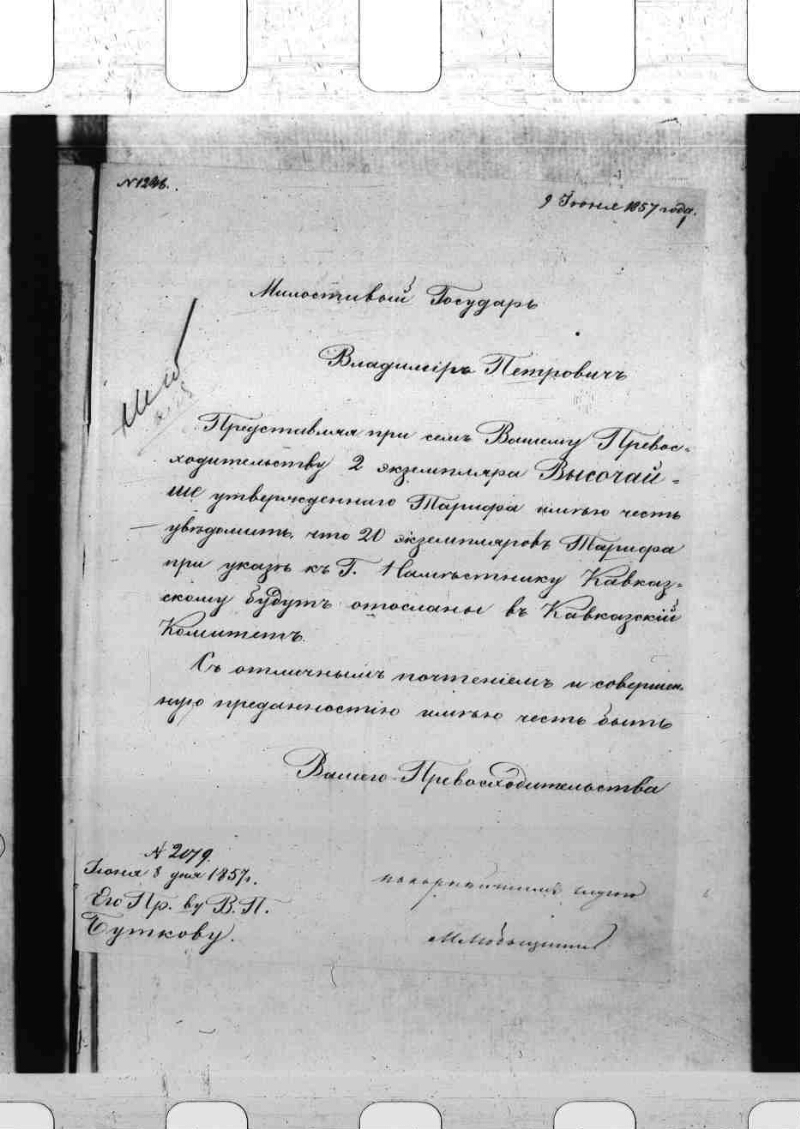 № 1246.
9 Іюня 1857 года.
Милостивый Государь
Владиміръ Петровичъ
Представляя при семъ Вашему Превос-
ходительству 2 экземпляра Высочай-
ше утвержденнаго Тарифа имѣю честь
увѣдомить, что 20 экземпляровъ Тарифа
при указѣ къ Г. Намѣстнику Кавказ-
скому будутъ отосланы въ Кавказскій
Комитетъ.
Съ отличнымъ почтеніемъ и совершен-
ною преданностію имѣю честь быть
Вашего Превосходительства
покорнѣйшимъ слугою
№ 2079.
Іюня 8 дня 1857 г.
Его Пр. ву В. П.
Буткову.